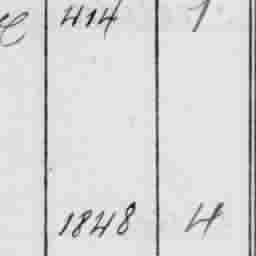 414 1
1848 4